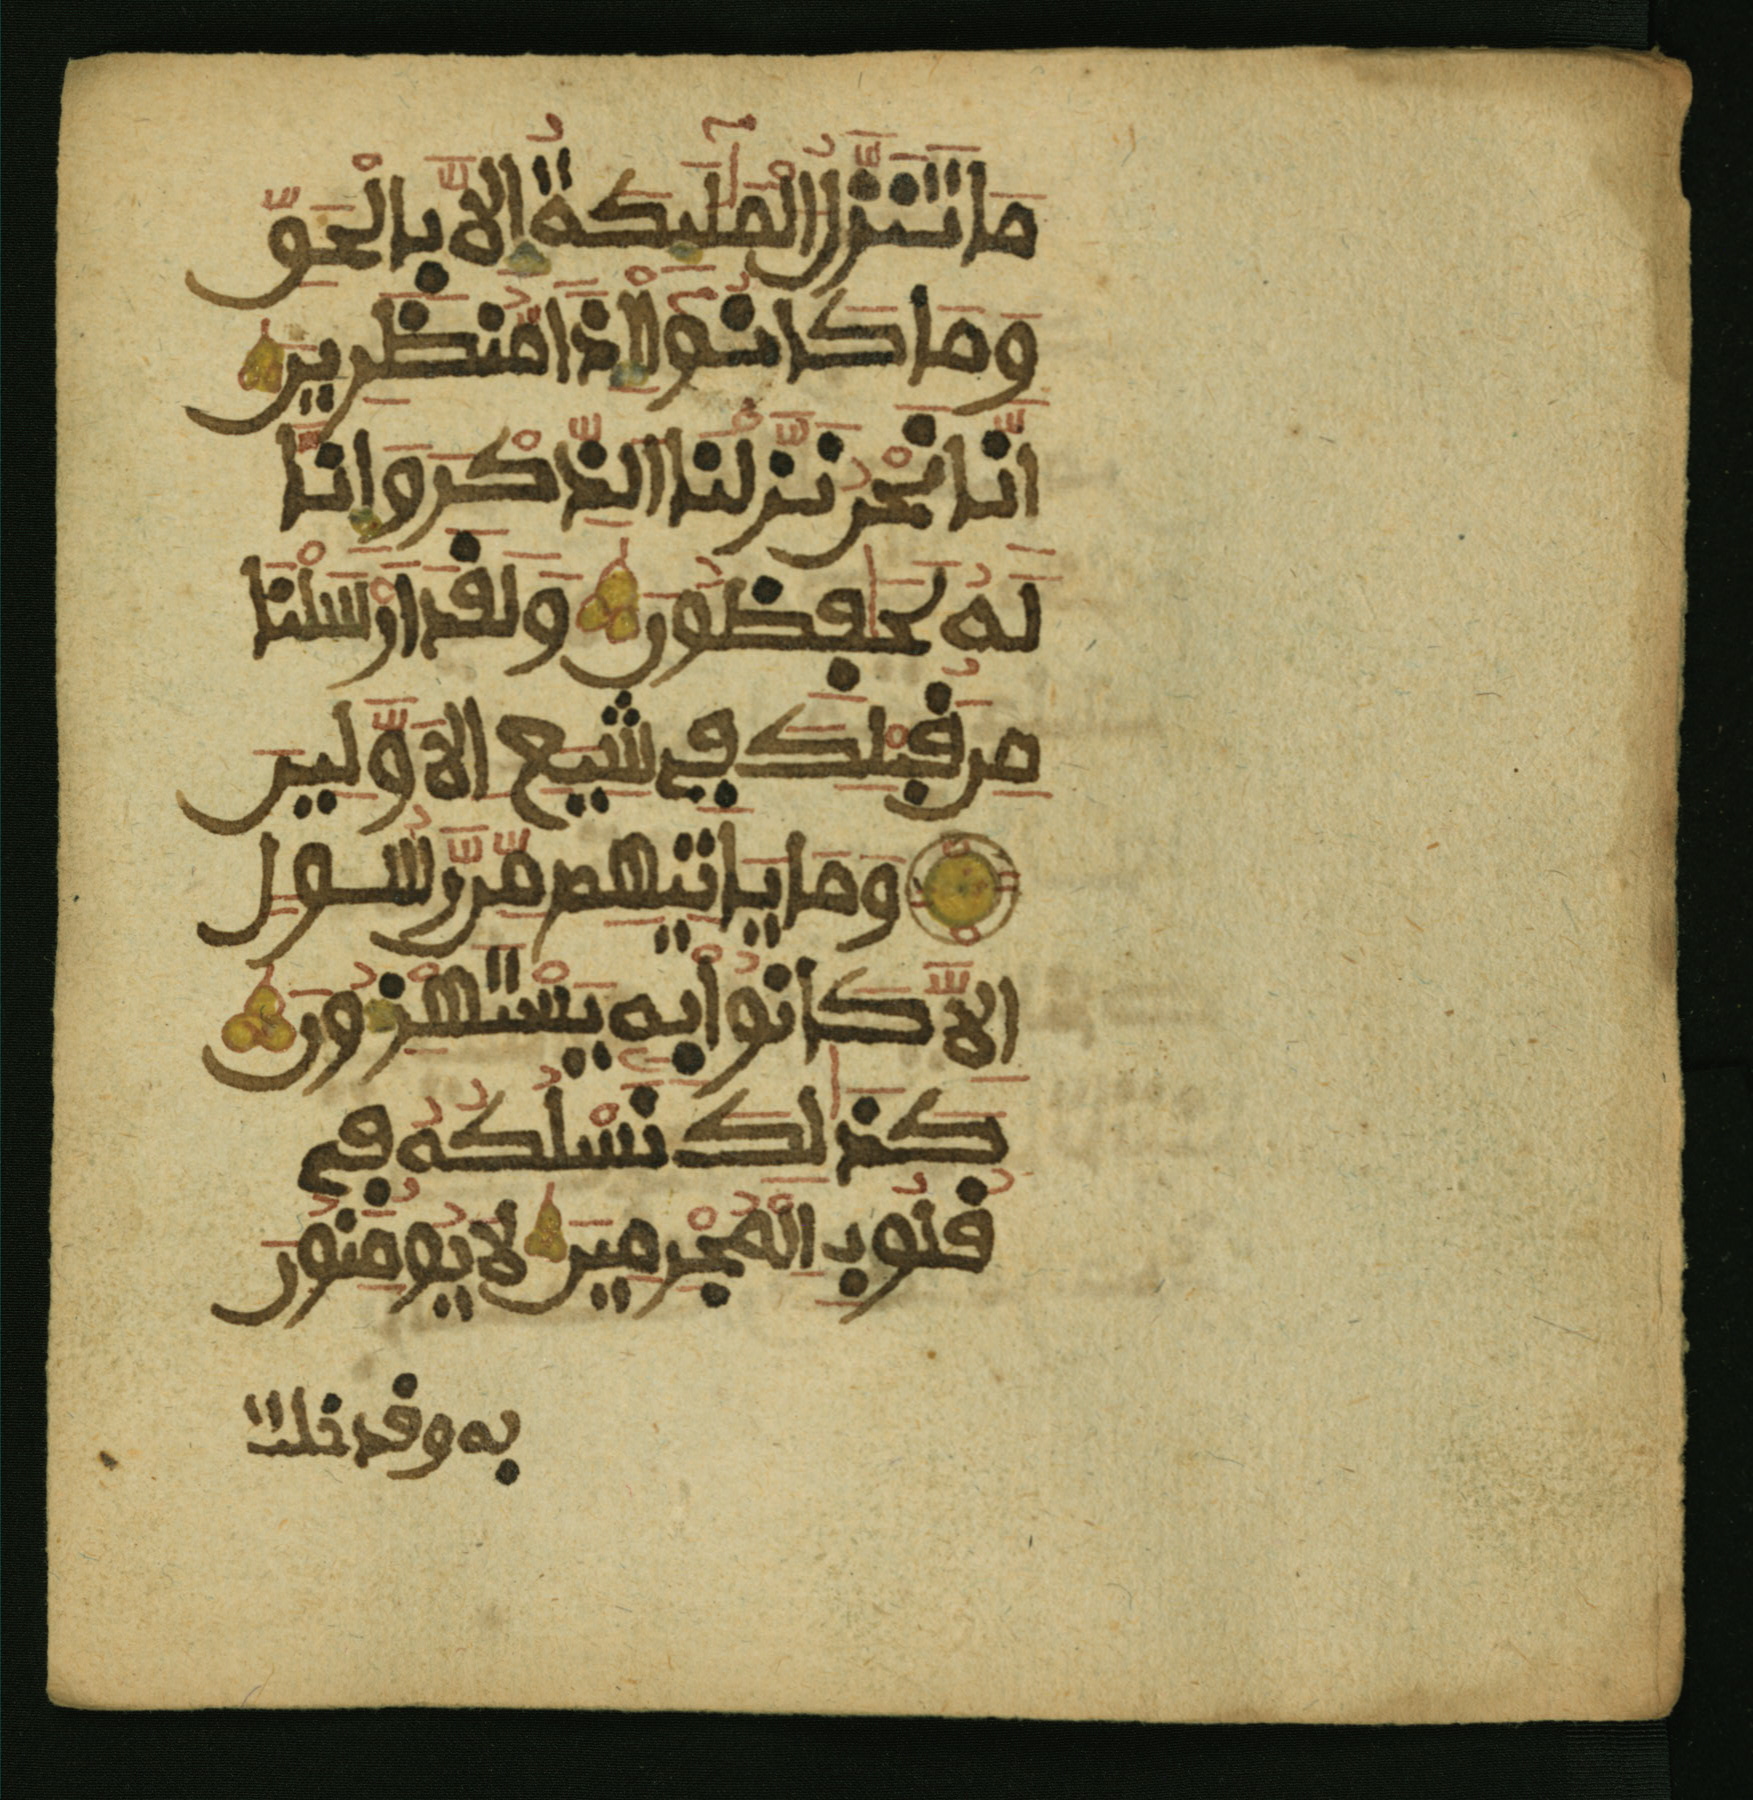 مَا تَنَزَّلُ الْمَلَٰٓئِكَةُ إِلَّا بِالْحَقِّ
وَمَا كَانُوٓا۟ إِذًا مُّنظَرِينَ
إِنَّا نَحْنُ نَزَّلْنَا الذِّكْرَ وَإِنَّا
لَهُۥ لَحَٰفِظُونَ وَلَقَدْ أَرْسَلْنَا
مِن قَبْلِكَ فِى شِيَعِ الْأَوَّلِينَ
وَمَا يَأْتِيهِم مِّن رَّسُولٍ
إِلَّا كَانُوا بِهِ يَسْتَهْزِءُونَ
كَذَٰلِكَ نَسْلُكُهُۥ فِى
قُلُوبِ الْمُجْرِمِينَ لَا يُومِنُونَ
به وقد خلت